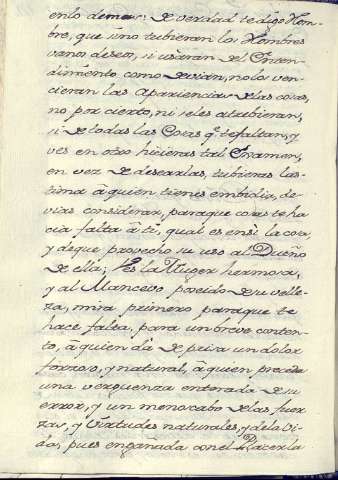 ento demas: de verdad te digo Hom-
bre, que sino tubieran los Hombres
vanos deseos, si usáran del Enten-
dimiento como devian, no los ven-
cieran las apariencias de las cosas,
no por cierto, ni se les atrubieran,
si de todas las Cosas q.e te faltan, y
ves en otro hicieras tal Examen,
en vez de desearlas, tubieras las-
tima â quien tienes embidia, de-
vias considerar, para que cosas te ha-
cia falta â ti, qual es en sì la cosa,
y de que provecho su uso al Dueño
de ella; Ves la Muger hermosa,
y al Mancevo poseido de su velle-
za, mira primero para que te
hace falta, para un breve conten-
to, â quien dà de prisa un dolor
forzoso, y natural, â quien precede
una verguenza enterada de su
error, y un menoscabo de las fuer-
zas, y Virtudes naturales, y de la Vi-
da, pues engañada con el Placer la